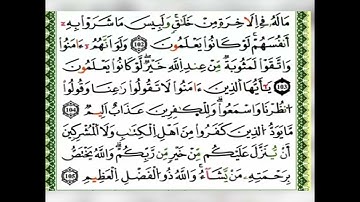 مَا لَهُۥ فِى اِ۬لَاخِرَةِ مِنْ خَلَٰقٖ وَلَبِيسَ مَا شَرَوْاْ بِهِۦٓ
أَنفُسَهُمْ لَوْ كَانُواْ يَعْلَمُونَ 102 وَلَوَ اَنَّهُمُۥٓ ءَامَنُواْ
وَاتَّقَوْاْ لَمَثُوبَةٞ مِّنْ عِندِ اِ۬للَّهِ خَيْرٞ لَّوْ كَانُواْ يَعْلَمُونَ
103 يَٰٓأَيُّهَا اَ۬لذِينَ ءَامَنُواْ لَا تَقُولُواْ رَٰعِنَا وَقُولُواْ
اُ۟نظُرْنَا وَاسْمَعُواْۖ وَلِلْكٰ۪فِرِينَ عَذَابٌ اَلِيمٞ 104
مَّا يَوَدُّ اُ۬لذِينَ كَفَرُواْ مِنَ اَهْلِ اِ۬لْكِتَٰبِ وَلَا اَ۬لْمُشْرِكِينَ
أَنْ يُّنَزَّلَ عَلَيْكُم مِّنْ خَيْرٖ مِّن رَّبِّكُمْۖ وَاللَّهُ يَخْتَصُّ
بِرَحْمَتِهِۦ مَنْ يَّشَآءُۖ وَاللَّهُ ذُو اُ۬لْفَضْلِ اِ۬لْعَظِيمِ 105